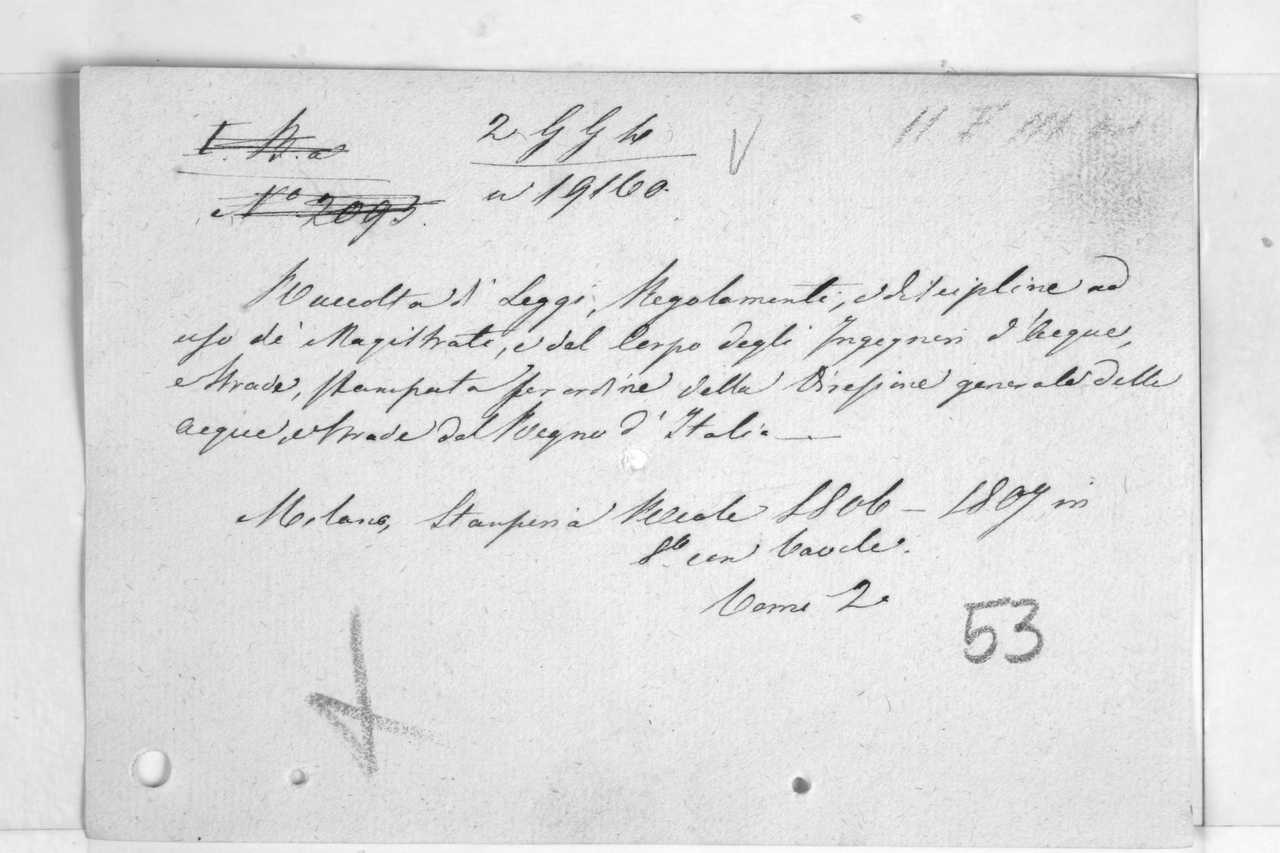 I. N. a
2 G G h
N.º 2093.
n 19160.
Raccolta di Leggi, Regolamenti, e discipline ad
uso de' Magistrati, e del Corpo degli Ingegneri d'Acque,
e Strade, stampata per ordine della Direzione generale delle
Acque, e Strade del Regno d'Italia
Milano, Stamperia Reale 1806 – 1807 in
8.º con tavole.
Tomi 2.
53